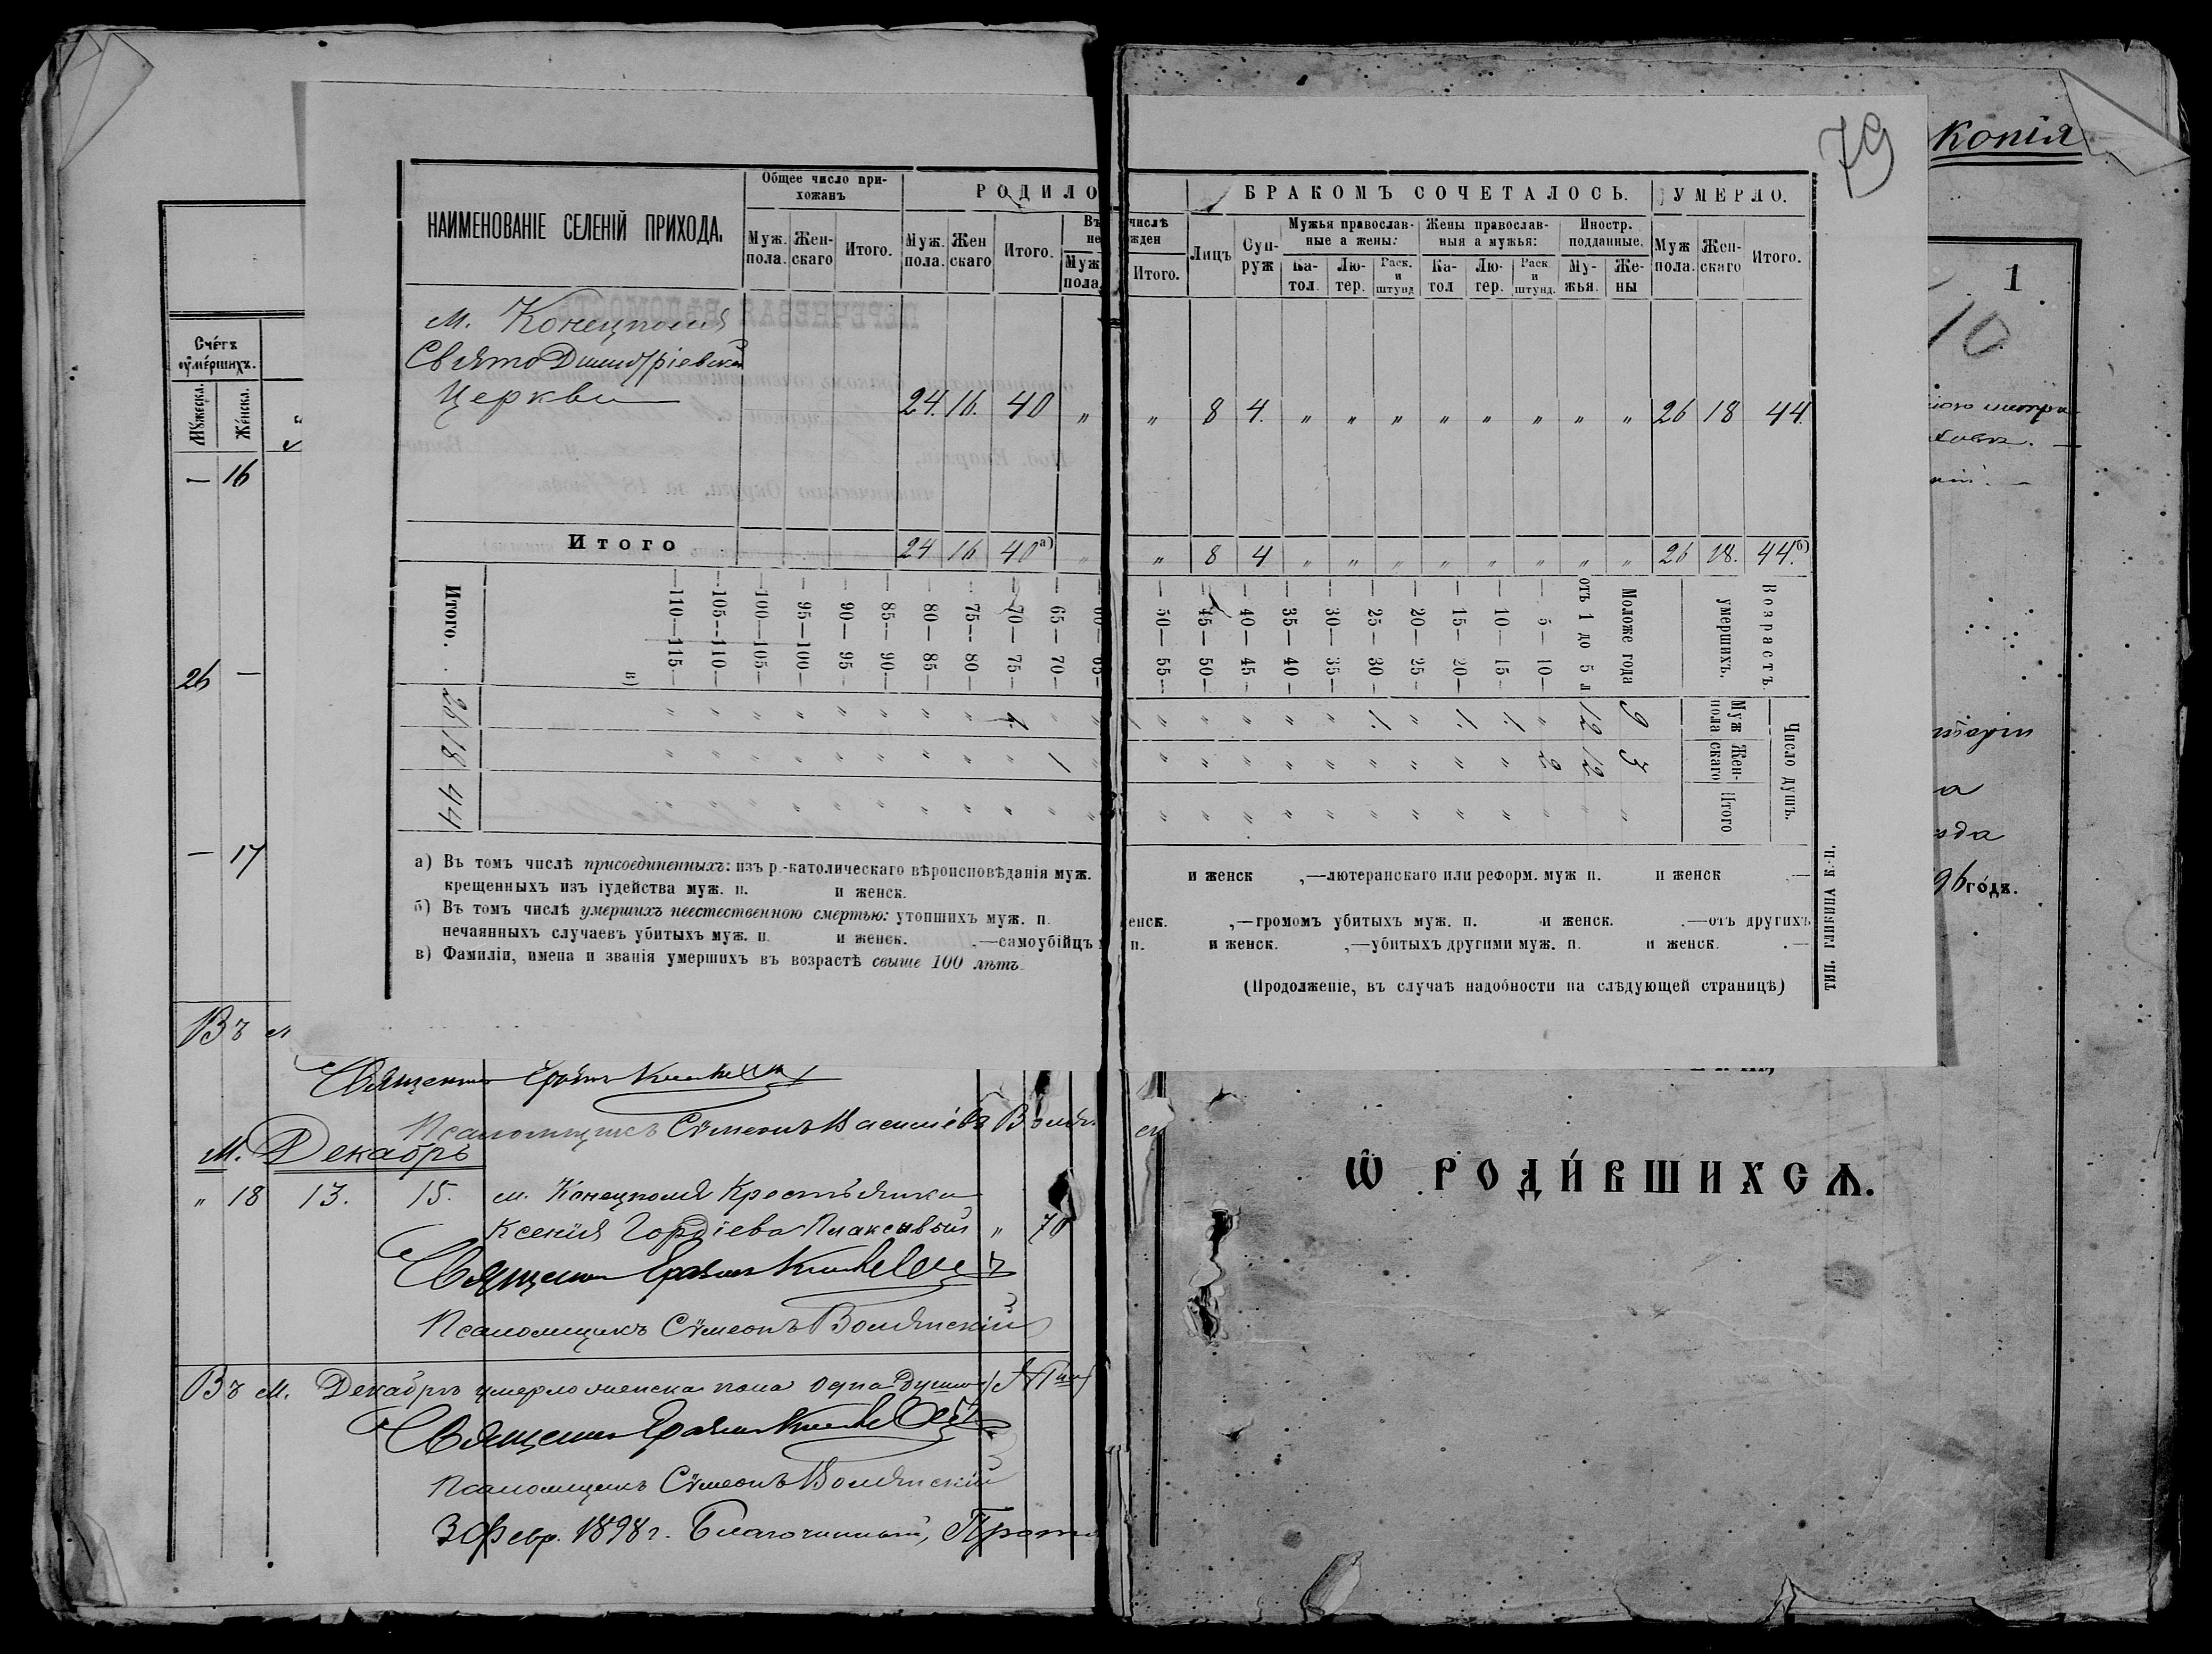 79
копія
НАИМЕНОВАНІЕ СЕЛЕНІЙ ПРИХОДА.
Общее число при-
хожанъ
Муж.
пола.
Жен-
скаго
Итого.
РОДИЛО
Муж.
пола.
Жен
скаго
Итого.
Въ
не
Муж
пола
числѣ
жден
Итого.
БРАКОМЪ СОЧЕТАЛОСЬ.
Лицъ
Суп-
руж
Мужья православ-
ные а жены:
Ка-
тол.
Лю-
тер.
Раск.
и
штунд
Жены православ-
ныя а мужья:
Ка-
тол
Лю-
тер.
Раск
и
штунд.
Иностр.
подданные.
Му-
жья.
Же-
ны
УМЕРЛО.
Муж
пола.
Жен-
скаго
Итого.
м. Конецполя
Свято Димитріевской
Церкви
24. 16. 40 " " 8 4. " " " " " " " " 26 18 44.
Итого 24 16 40 а) " " 8 4 " " " " " " " " 26 18. 44. б)
Возрастъ
умершихъ.
Моложе года
отъ 1 до 5 л
5—10—
10—15—
15—20—
20—25—
25—30—
30—35—
35—40—
40—45—
45—50—
50—55—
65—70—
70—75—
75—80—
80—85—
85—90—
90—95—
95—100—
100—105—
105—110—
110—115—
в)
Итого.
Число душъ.
Муж
пола
9 12 " 1. 1. " 1. 26
Жен-
скаго
3 12 2 " " " 1 18
Итого
44
а) Въ томъ числѣ присоединенныхъ: изъ р.-католическаго вѣроисповѣданія муж. и женск „—лютеранскаго или реформ. муж п. и женск .—
крещенныхъ изъ іудейства муж. п. и женск.
б) Въ томъ числѣ умершихъ неестественною смертью: утопшихъ муж. п. енск. „—громомъ убитыхъ муж. п. и женск. .—отъ другихъ
нечаянныхъ случаевъ убитыхъ муж. п. и женск. .—самоубійцъ п. и женск. „—убитыхъ другими муж. п. и женск. .—
в) Фамиліи, имена и званія умершихъ въ возрастѣ свыше 100 лѣтъ.
(Продолженіе, въ случаѣ надобности на слѣдующей страницѣ)
ТИП. ГЛИКИНА К.-П.
Счéтъ
оумéршихъ.
Мужеска.
Жéнска.
— 16
26 —
— 17
Въ м
Священникъ
Псаломщикъ Сѵмеонъ Васильевъ
М. Декабрь
" 18 13. 15. м. Конецполя Крестьянка
Ксенія Гордіева Плаксивый " 70
Священникъ
Псаломщикъ Сѵмеонъ Волянскій
Въ М. Декабрѣ умерло женска пола одна душа
Священникъ
Псаломщикъ Сѵмеонъ Волянскій
3 Февр. 1898 г. Благочинный, Прото
1
10
96 гóдъ.
Ѡ РОДИ́ВШИХСѦ.